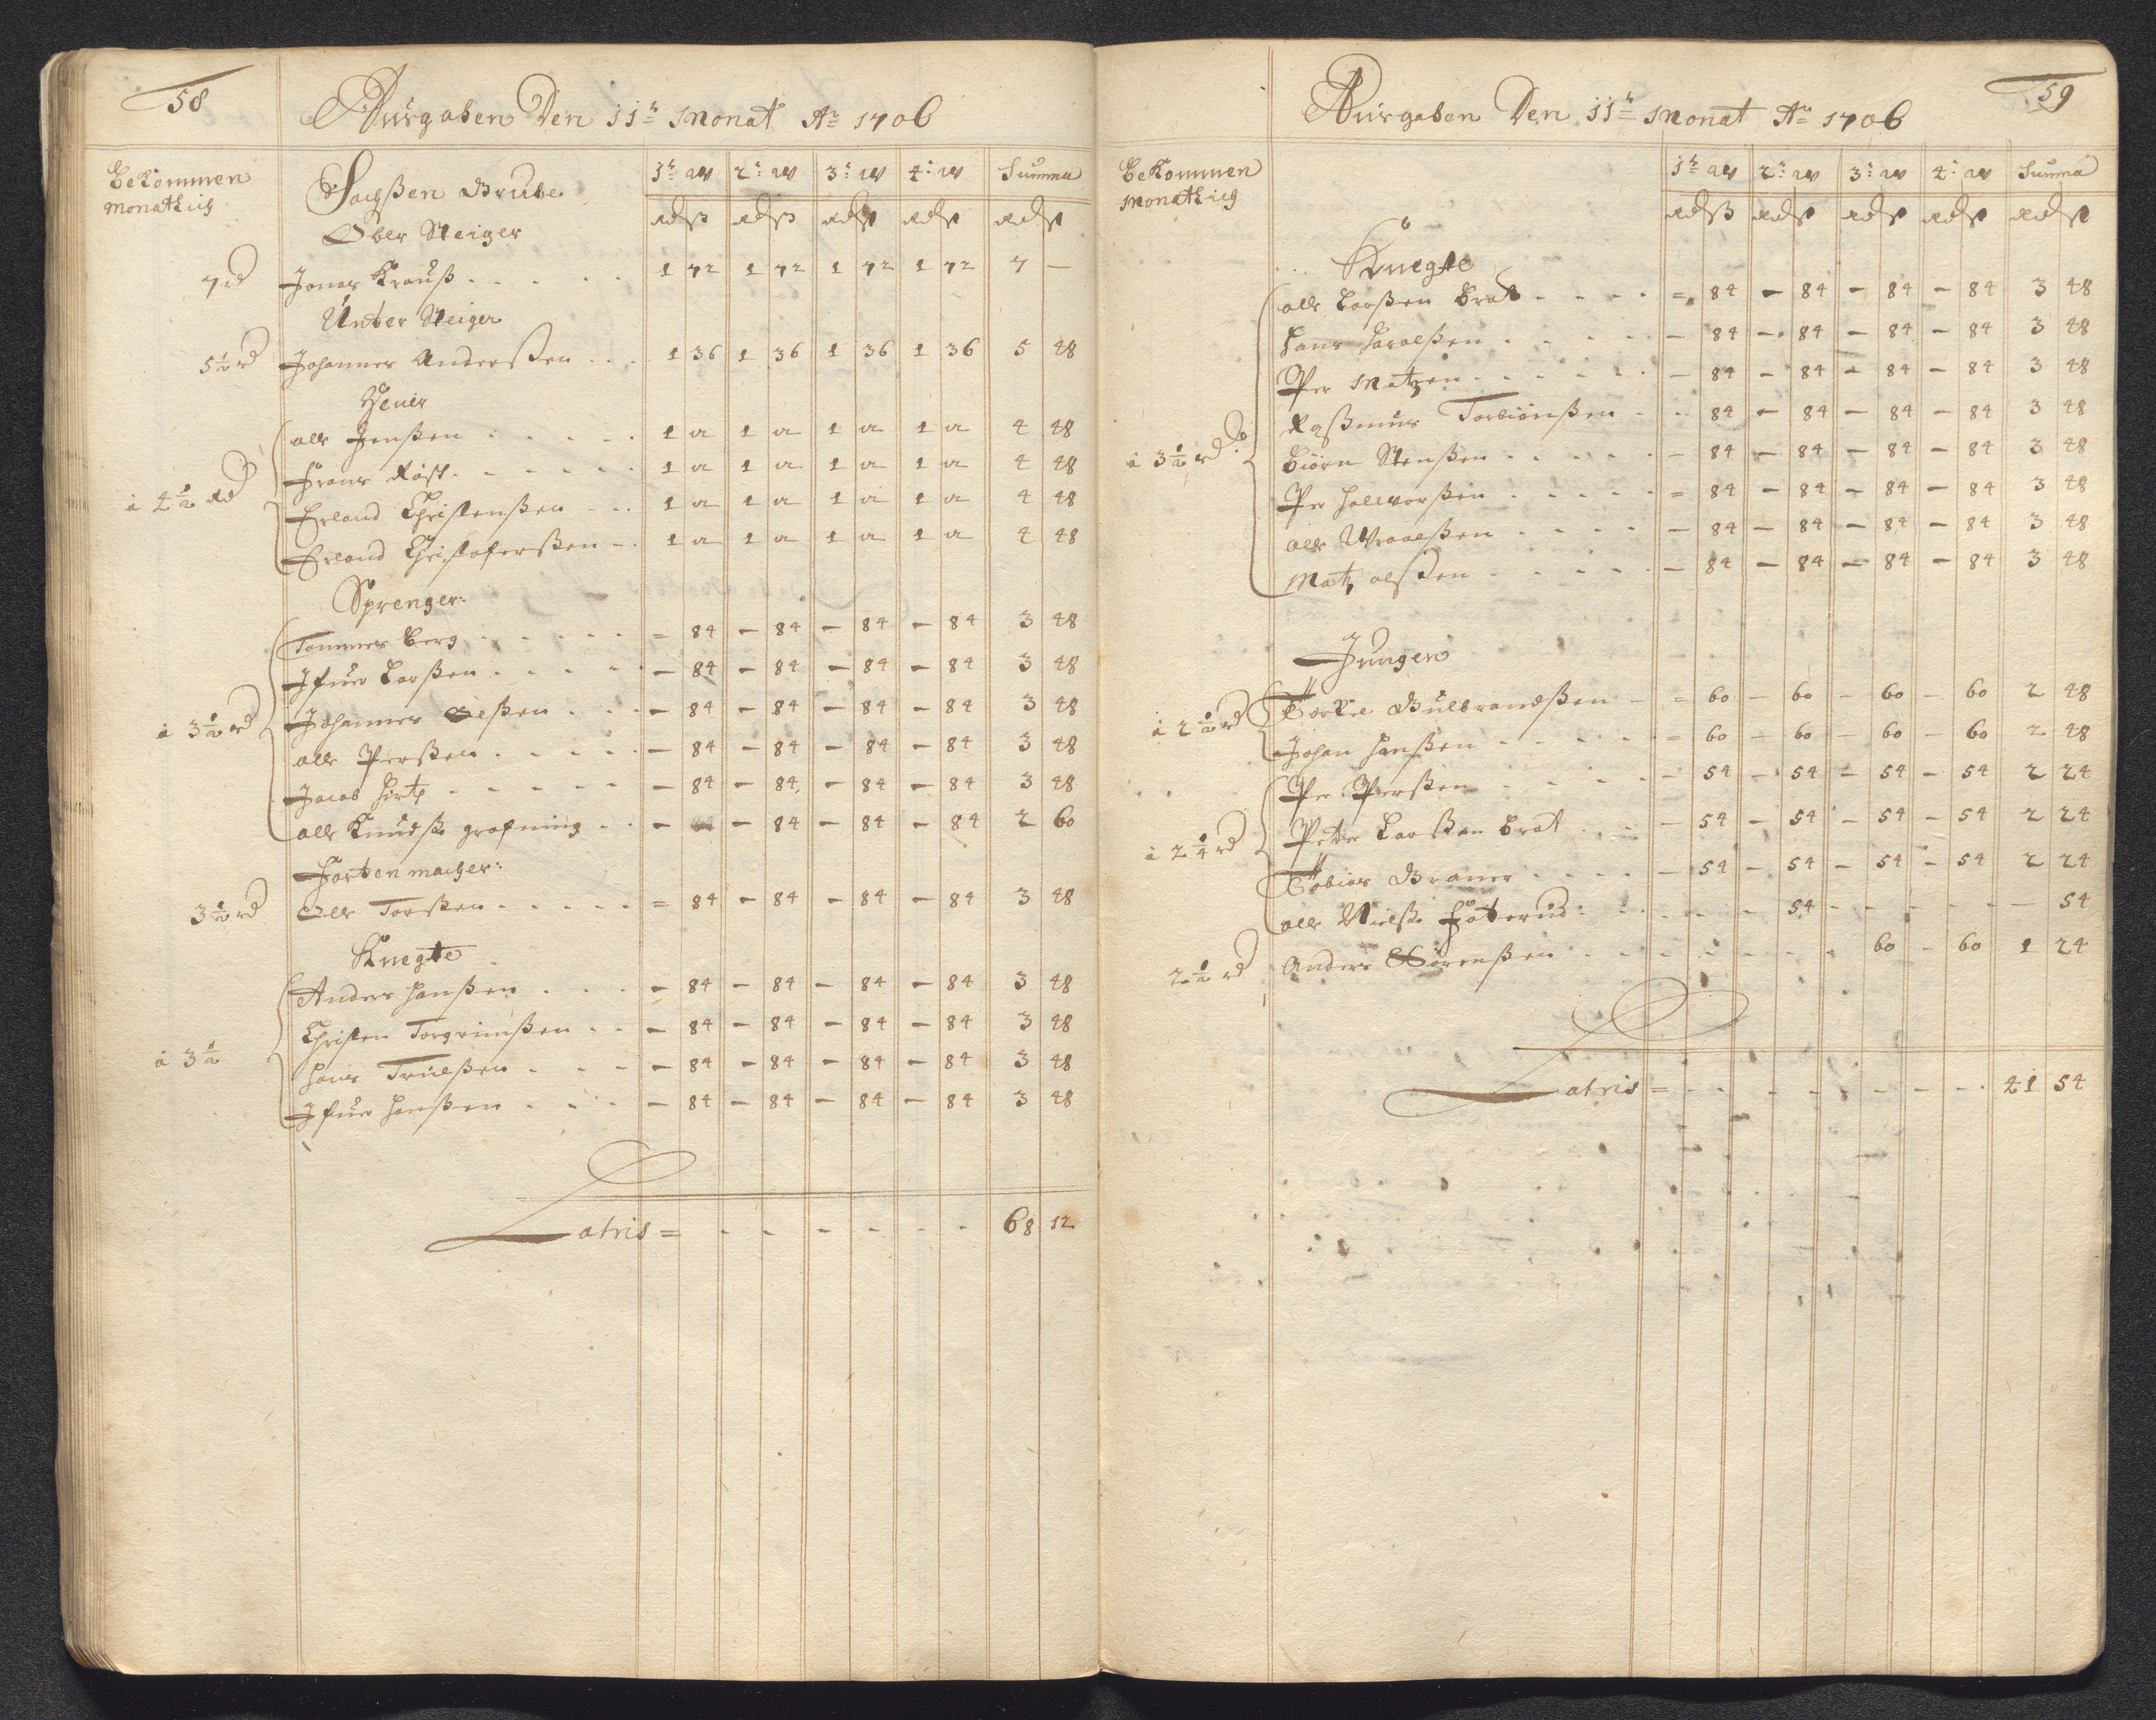 58
Ausgaben Den 11t Monat Ao 1706
Bekommen
Monatlich
Sachßen Grube
Ober Steiger
1t W 2: W 3: W 4: W Summa
Rdß Rdß Rdß Rdß Rdß
7 rd Jonas Krauß 1 72 1 72 1 72 1 72 7 —
Unter Steiger
5½ rd Johannes Anderßen 1 36 1 36 1 36 1 36 5 48
Heuer
olle Jenßen 1 12 1 12 1 12 1 12 4 48
Frans Röst 1 12 1 12 1 12 1 12 4 48
à 4½ Rd
Erland Christenßen 1 12 1 12 1 12 1 12 4 48
Erland Christoferßen 1 12 1 12 1 12 1 12 4 48
Sprenger:
Tommes Berg = 84 – 84 – 84 – 84 3 48
Ifuer Larßen – 84 – 84 – 84 – 84 3 48
à 3½ rd
Johannes Olßen – 84 – 84 – 84 – 84 3 48
olle Perßen – 84 – 84 – 84 – 84 3 48
Jacob Hirt – 84 – 84 – 84 – 84 3 48
olle Knudß grafning – – – 84 – 84 – 84 2 60
Karten macher:
3½ rd Olle Torßen = 84 – 84 – 84 – 84 3 48
Knegte
Anders Hanßen – 84 – 84 – 84 – 84 3 48
Christen Torgrimßen – 84 – 84 – 84 – 84 3 48
à 3½
Hans Trulßen – 84 – 84 – 84 – 84 3 48
Ifuer Hanßen – 84 – 84 – 84 – 84 3 48
Latris = 68 12
59
Ausgaben Den 11t Monat Ao 1706
Bekommen
Monatlich
1t W 2: W 3: W 4: W Summa
Rdß Rdß Rdß Rdß Rdß
Knegte
olle Larßen Brat = 84 – 84 – 84 – 84 3 48
Hans Haralßen – 84 – 84 – 84 – 84 3 48
Per Matzen – 84 – 84 – 84 – 84 3 48
Raßmus Torbiönßen – 84 – 84 – 84 – 84 3 48
à 3½ rd
Biörn Stenßen – 84 – 84 – 84 – 84 3 48
Per Halworßen = 84 – 84 – 84 – 84 3 48
olle Wraalßen – 84 – 84 – 84 – 84 3 48
Matz olßen – 84 – 84 – 84 – 84 3 48
Jungen
à 2½ rd Torkel Gulbrandßen = 60 – 60 – 60 – 60 2 48
Johan Hanßen = 60 – 60 – 60 – 60 2 48
Per Perßen – 54 – 54 – 54 – 54 2 24
à 2¼ rd Peter Larßen Brat – 54 – 54 – 54 – 54 2 24
Tobias Braner – 54 – 54 – 54 – 54 2 24
olle Nielß 54 – – – – — 54
2½ rd Anders Sörenßen 60 – 60 1 24
Latris = 41 54